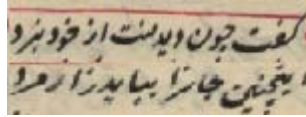 گفت چون دیدنت از خود بزد
اینچنین جانرا بیاید زار مرد